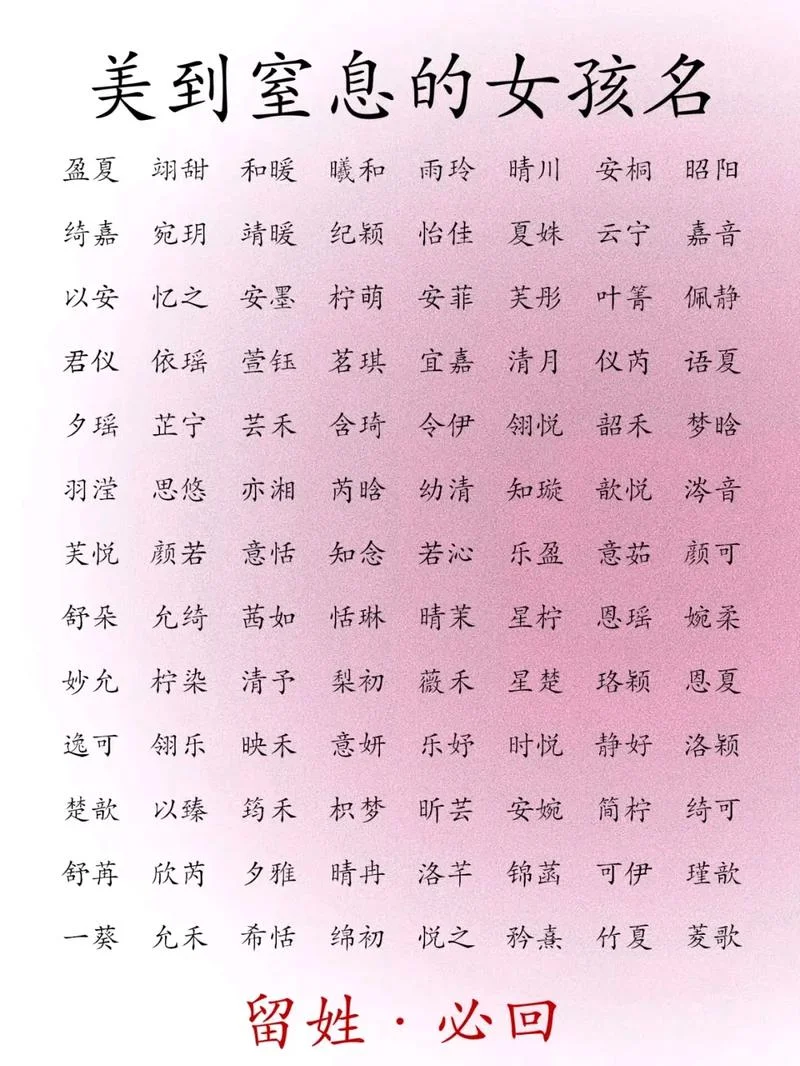 美到窒息的女孩名
盈夏 翊甜 和暖 曦和 雨玲 晴川 安桐 昭阳
绮嘉 宛玥 靖暖 纪颖 怡佳 夏姝 云宁 嘉音
以安 忆之 安墨 柠萌 安菲 芙彤 叶箐 佩静
君仪 依瑶 萱钰 茗琪 宜嘉 清月 仪芮 语夏
夕瑶 芷宁 芸禾 含琦 令伊 翎悦 韶禾 梦晗
羽滢 思悠 亦湘 芮晗 幼清 知璇 歆悦 涔音
芙悦 颜若 意恬 知念 若沁 乐盈 意茹 颜可
舒朵 允绮 茜如 恬琳 晴茉 星柠 恩瑶 婉柔
妙允 柠染 清予 梨初 薇禾 星楚 珞颖 恩夏
逸可 翎乐 映禾 意妍 乐妤 时悦 静好 洛颖
楚歆 以臻 筠禾 枳梦 昕芸 安婉 简柠 绮可
舒苒 欣芮 夕雅 晴冉 洛芊 锦菡 可伊 瑾歆
一葵 允禾 希恬 绵初 悦之 矜熹 竹夏 菱歌
留姓·必回